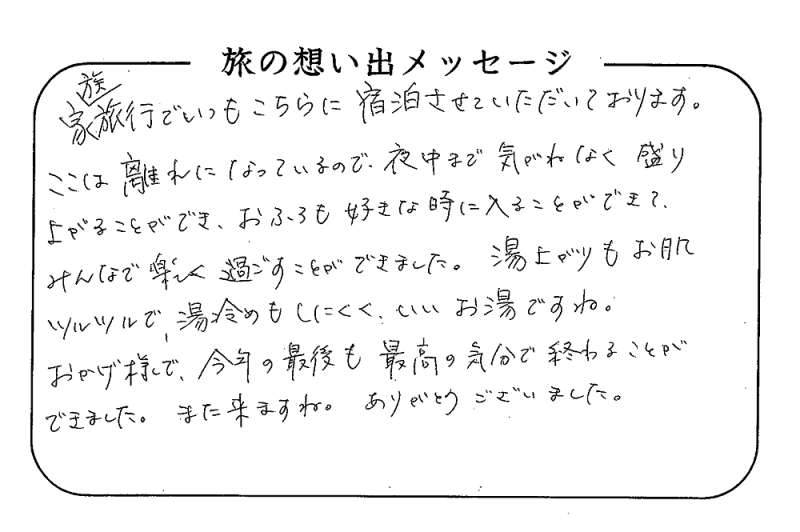 旅の想い出メッセージ
家族旅行でいつもこちらに宿泊させていただいております。
ここは離れになっているので、夜中まで気がねなく盛り
上がることができ、おふろも好きな時に入ることができて、
みんなで楽しく過ごすことができました。湯上がりもお肌
ツルツルで、湯冷めもしにくく、いいお湯ですね。
おかげ様で、今年の最後も最高の気分で終わることが
できました。また来ますね。ありがとうございました。